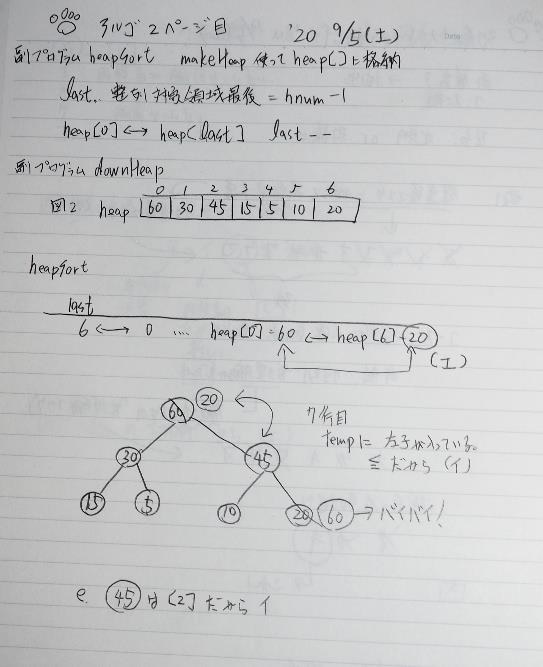 アルゴ2ページ目 '20 9/5(土)
副プログラム heapSort makeHeap 使って heap[]に格納
last.. 整列対象領域最後 = hnum-1
heap[0] ↔ heap[last] last --
副プログラム downHeap
0 1 2 3 4 5 6
図2 heap 60 30 45 15 5 10 20
heapSort
last
6 ↔ 0 .... heap[0]=60 ↔ heap[6]=20
(エ)
60 20
7行目
tempに 左子が入っている。
30 45
≦ だから (イ)
15 5 10 20 60 → バイバイ!
e. 45 は [2] だから イ